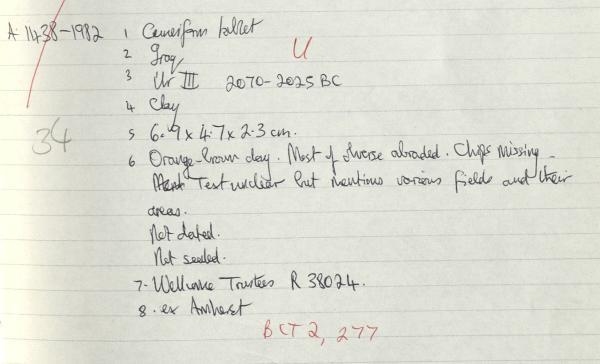 A 1438-1982 1 Cuneiform tablet
U
2 Iraq
3 Ur III 2070-2025 BC
4 Clay
34
5 6.9 x 4.7 x 2.3 cm.
6 Orange-brown clay. Most of obverse abraded. Chips missing.
Text unclear but mentions various fields and their
areas.
Not dated.
Not sealed.
7. Wellcome Trustees R 38024.
8. ex Amherst
BCT 2, 277